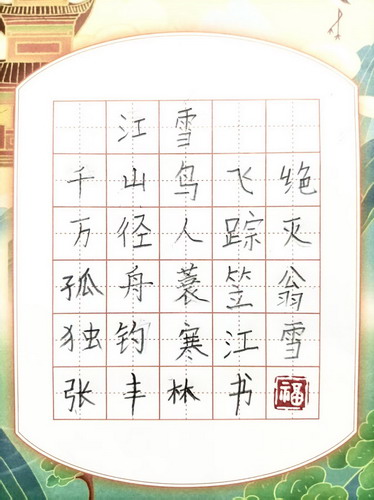 江雪
千山鸟飞绝
万径人踪灭
孤舟蓑笠翁
独钓寒江雪
张丰林书
福